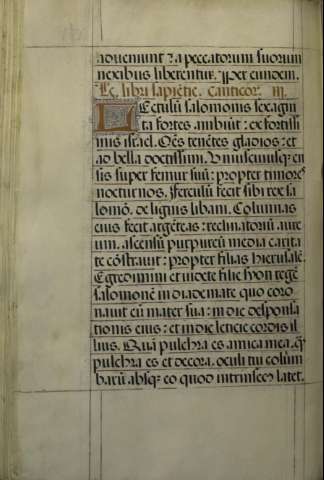 adveniunt ⁊ a peccatorum suorum
nexibus liberentur. Per eundem.
Lc̄. libri sapiētie. Canticor. III.
Lectulū salomonis sexagin
ta fortes ambiūt: ex fortissi
mis israel. Oēs tenētes gladios: et
ad bella doctissimi. Uniuscuiusqꝫ en
sis super femur suū: propter timores
nocturnos. Ferculū fecit sibi rex sa
lomō. de lignis libani. Columnas
eius fecit argēteas: reclinatoriū aure
um. ascensū purpureū media carita
te cōstravit: propter filias hierusalē.
Egredimini et videte filie sion regē
salomonē in diademate quo coro
navit eū mater sua: in die desponsa
tionis eius: et in die leticie cordis il
lius. Quā pulchra es amica mea. qꝫ
pulchra es et decora. oculi tui colūm
barū absqꝫ eo quod intrinsec9 latet.